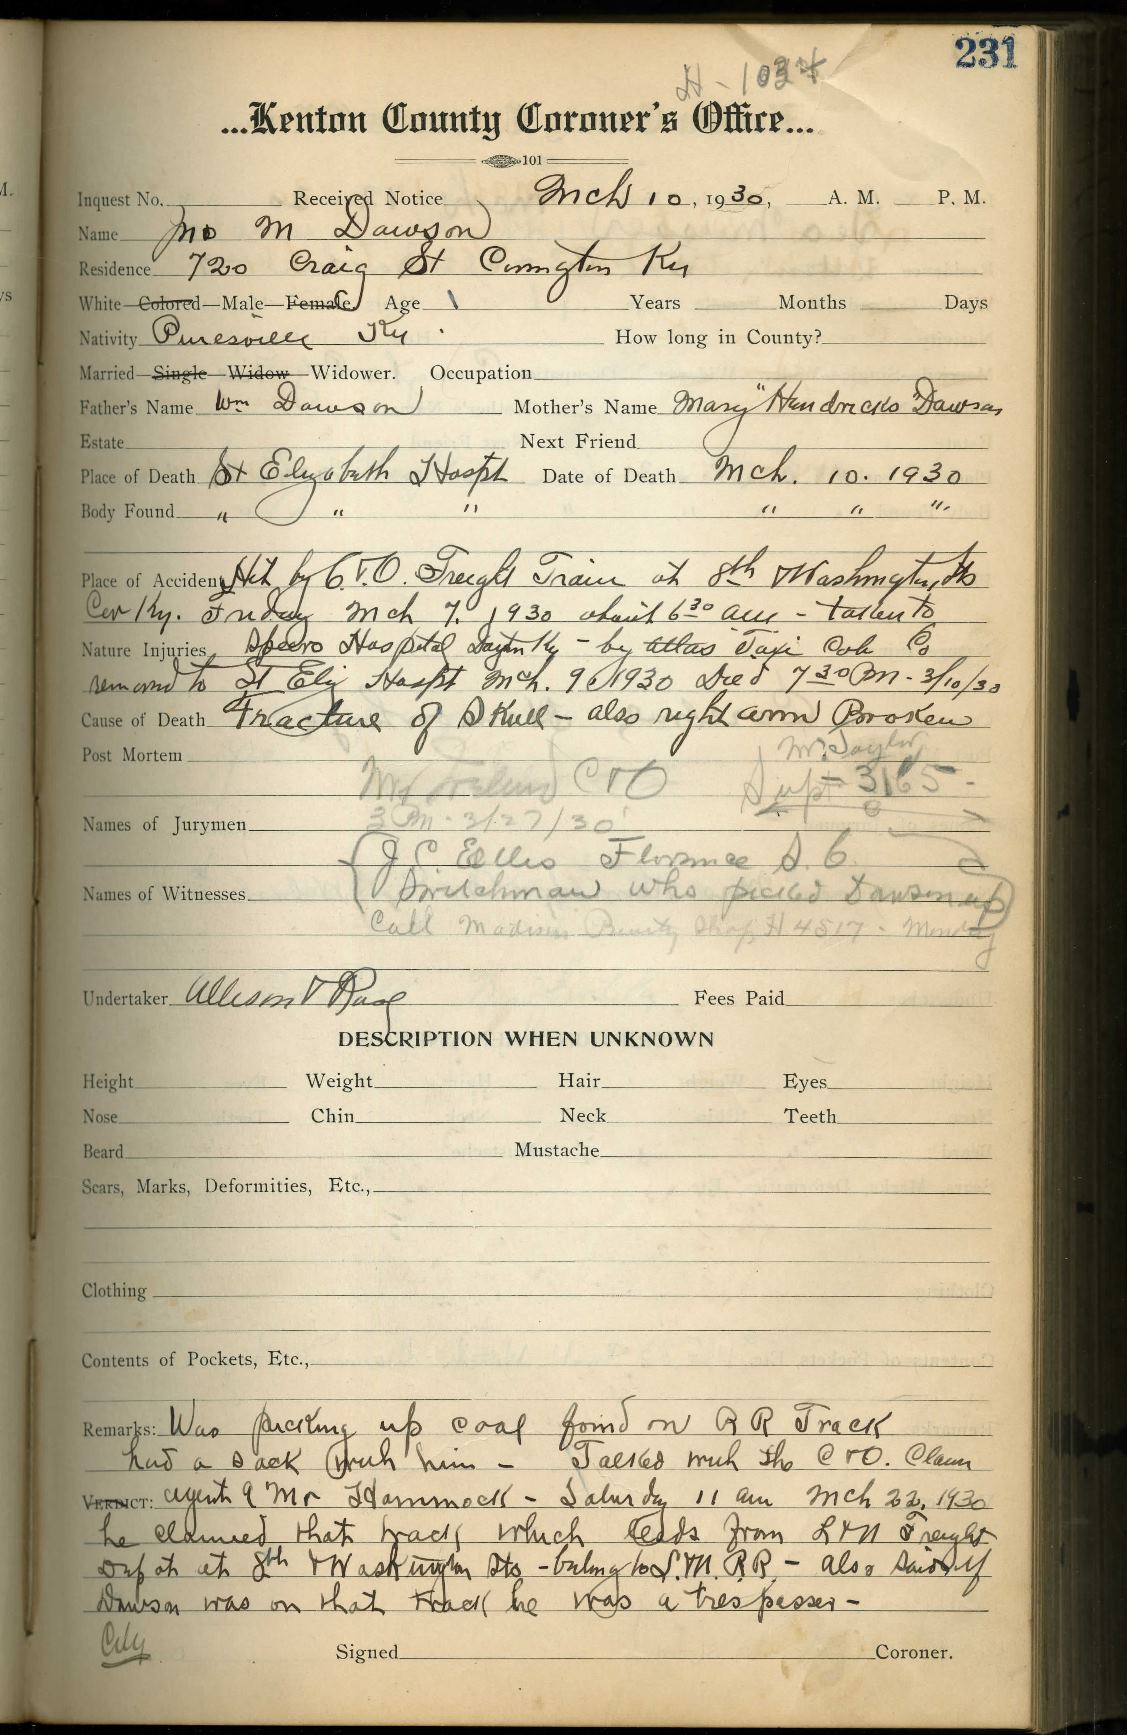 231
H-1034
...Kenton County Coroner's Office...
101
Inquest No. Received Notice Mch 10, 1930, A. M. P. M.
Name Jno M Dawson
Residence 720 Craig St Covington Ky
White—Colored—Male—Female Age Years Months Days
Nativity Ky. How long in County?
Married—Single—Widow—Widower. Occupation
Father's Name Wm Dawson Mother's Name Mary "Hendricks" Dawson
Estate Next Friend
Place of Death St Elizabeth Hospt Date of Death Mch. 10. 1930
Body Found " " " " " "
Place of Accident Hit by C. & O. Freight Train at 8th & Washington Sts
Cov Ky. Friday Mch 7. 1930 about 6 30 am - taken to
Nature Injuries Speers Hospital Dayton Ky - by Atlas Taxi Cab Co
removed to St Eliz Hospt Mch. 9 1930 Died 7 30 PM - 3/10/30
Cause of Death Fracture of Skull - also right arm Broken
Post Mortem Mr. Taylor
Mr Ireland C & O Supt 3165 -
Names of Jurymen 3 PM - 3/27/30
J C Ellis Florence S. C.
Names of Witnesses Switchman who picked Dawson up
Call Madison Beauty Shop H 4517 - Monday
Undertaker Allison & Rose Fees Paid
DESCRIPTION WHEN UNKNOWN
Height Weight Hair Eyes
Nose Chin Neck Teeth
Beard Mustache
Scars, Marks, Deformities, Etc.,
Clothing
Contents of Pockets, Etc.,
Remarks: Was picking up coal found on R R Track
had a sack with him - Talked with the C & O. Claim
VERDICT: agent a Mr Hammock - Saturday 11 am Mch 22, 1930
he claimed that track which leads from L & N Freight
Depot at 8th & Washington Sts - belong to L. & N. RR - also said if
Dawson was on that track he was a trespasser -
City
Signed Coroner.